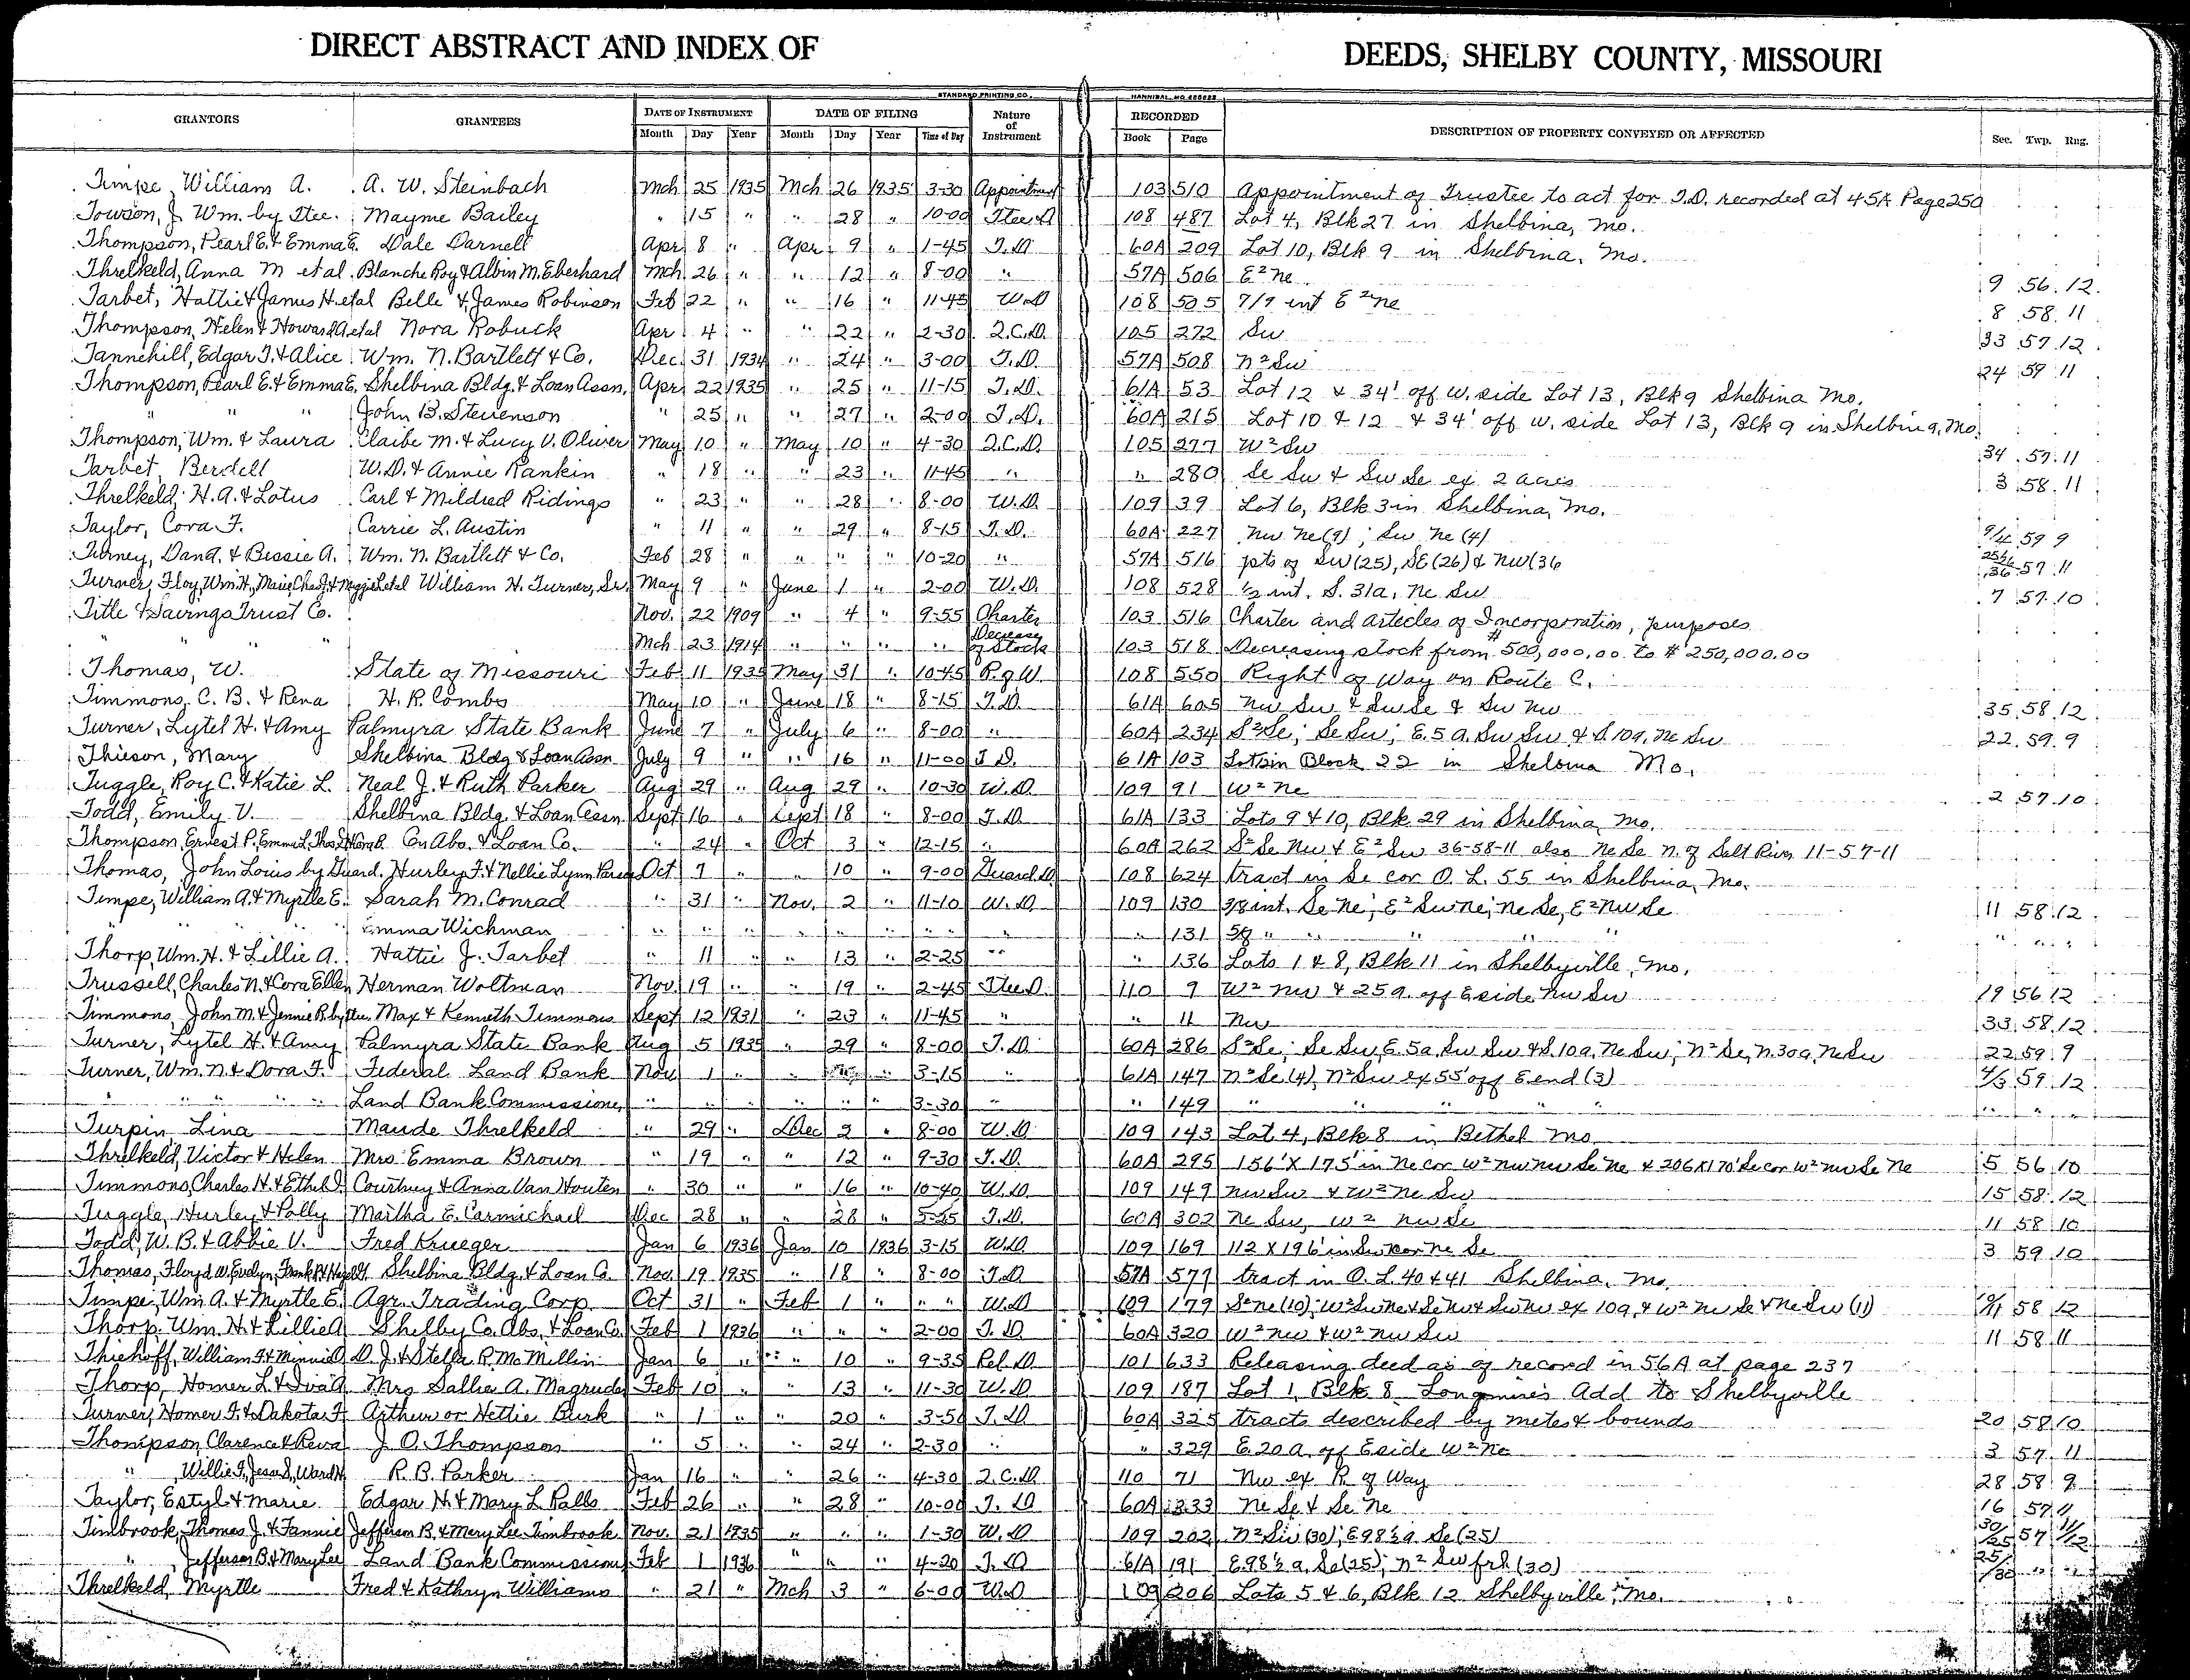 DIRECT ABSTRACT AND INDEX OF DEEDS, SHELBY COUNTY, MISSOURI
STANDARD PRINTING CO. HANNIBAL, MO.
GRANTORS GRANTEES DATE OF INSTRUMENT DATE OF FILING Nature of Instrument RECORDED DESCRIPTION OF PROPERTY CONVEYED OR AFFECTED Sec. Twp. Rng.
Month Day Year Month Day Year Time of Day Book Page
Timpe, William A. A. W. Steinbach Mch 25 1935 Mch 26 1935 3-30 Appointment 103 510 Appointment of Trustee to act for T.D. recorded at 45A Page 250
Towson, J. Wm. by Ttee. Mayme Bailey " 15 " " 28 " 10-00 Ttee D 108 487 Lot 4, Blk 27 in Shelbina, Mo.
Thompson, Pearl E. & Emma E. Dale Darnell Apr 8 " Apr 9 " 1-45 T.D. 60A 209 Lot 10, Blk 9 in Shelbina, Mo.
Threlkeld, Anna M et al Blanche Roy & Albin M. Eberhard Mch 26 " " 12 " 8-00 " 57A 506 E² Ne 9 56 12
Tarbet, Hattie & James H. etal Belle & James Robinson Feb 22 " " 16 " 11-45 W.D 108 505 7/9 int E² Ne 8 58 11
Thompson, Helen & Howard A. etal Nora Robuck Apr 4 " " 22 " 2-30 Q.C.D. 105 272 Sw 33 57 12
Tannehill, Edgar T. & Alice Wm. N. Bartlett & Co. Dec. 31 1934 " 24 " 3-00 T.D. 57A 508 N² Sw 24 59 11
Thompson, Pearl E. & Emma E. Shelbina Bldg. & Loan Assn. Apr 22 1935 " 25 " 11-15 T.D. 61A 53 Lot 12 & 34' off W. side Lot 13, Blk 9 Shelbina Mo.
" " " John B. Stevenson " 25 " " 27 " 2-00 T.D. 60A 215 Lot 10 & 12 & 34' off w. side Lot 13, Blk 9 in Shelbina, Mo.
Thompson, Wm. & Laura Claibe M. & Lucy V. Oliver May 10 " May 10 " 4-30 Q.C.D. 105 277 W² Sw 34 57 11
Tarbet, Berdell W.D. & Annie Rankin " 18 " " 23 " 11-45 " " 280 Se Sw & Sw Se ex 2 acres 3 58 11
Threlkeld, H. A. & Lotus Carl & Mildred Ridings " 23 " " 28 " 8-00 W.D. 109 39 Lot 6, Blk 3 in Shelbina, Mo.
Taylor, Cora F. Carrie L. Austin " 11 " " 29 " 8-15 T.D. 60A 227 Nw Ne (9); Sw Ne (4) 9/4 59 9
Turney, Dan A. & Bessie A. Wm. N. Bartlett & Co. Feb 28 " " " " 10-20 " 57A 516 pts of SW (25), SE (26) & NW (36 25 26 36 57 11
Turner, Floy, Wm. H., Marie, Chas. J. & Maggie L etal William H. Turner, Sr. May 9 " June 1 " 2-00 W.D. 108 528 ½ int. S. 31a, Ne Sw 7 57 10
Title & Savings Trust Co. Nov. 22 1909 " 4 " 9-55 Charter 103 516 Charter and articles of Incorporation, purposes
" " " Mch 23 1914 " " " " Decrease of Stock 103 518 Decreasing stock from $500,000.00 to $250,000.00
Thomas, W. State of Missouri Feb 11 1935 May 31 " 10-45 R. of W. 108 550 Right of Way on Route C.
Timmons, C. B. & Rena H. R. Combs May 10 " June 18 " 8-15 T.D. 61A 605 Nw Sw & Sw Se & Sw Nw 35 58 12
Turner, Lytel H. & Amy Palmyra State Bank June 7 " July 6 " 8-00 " 60A 234 S² Se; Se Sw; E. 5 a. Sw Sw & S. 10a, Ne Sw 22 59 9
Thieson, Mary Shelbina Bldg & Loan Assn July 9 " " 16 " 11-00 T D. 61A 103 in Block 22 in Shelbina Mo.
Tuggle, Roy C. & Katie L. Neal J. & Ruth Parker Aug 29 " Aug 29 " 10-30 W.D. 109 91 W² Ne 2 57 10
Todd, Emily V. Shelbina Bldg. & Loan Assn Sept 16 " Sept 18 " 8-00 T.D 61A 133 Lots 9 & 10, Blk. 29 in Shelbina, Mo.
Thompson, Ernest P., Emma L., Thos. & Cora R. Abs. & Loan Co. " 24 " Oct 3 " 12-15 " 60A 262 S² Se Nw & E² Sw 36-58-11 also Ne Se N. of Salt River 11-57-11
Thomas, John Louis by Guard. Hurley F. & Nellie Lynn Oct 7 " " 10 " 9-00 Guard D 108 624 tract in Se cor O. L. 55 in Shelbina, Mo.
Timpe, William A. & Myrtle E. Sarah M. Conrad " 31 " Nov. 2 " 11-10 W.D. 109 130 3/8 int. Se Ne; E² Sw Ne; Ne Se, E² NW Se 11 58 12
" " " Emma Wichman " " " " " " " " " 131 5/8 " " " " " " "
Thorp, Wm. H. & Lillie A. Hattie J. Tarbet " 11 " " 13 " 2-25 " " 136 Lots 1 & 8, Blk 11 in Shelbyville, Mo.
Trussell, Charles N. & Cora Ellen Herman Woltman Nov. 19 " " 19 " 2-45 Ttee D. 110 9 W² Nw & 25 a. off E side Nw Sw 19 56 12
Timmons John M. & Jennie R. by ttee. Max & Kenneth Timmons Sept 12 1931 " 23 " 11-45 " " 11 Nw 33 58 12
Turner, Lytel H. & Amy Palmyra State Bank Aug 5 1935 " 29 " 8-00 T.D. 60A 286 S² Se; Se Sw, E. 5a, Sw Sw & S. 10a, Ne Sw; N² Se, N. 30a, Ne Sw 22 59 9
Turner, Wm. N. & Dora F. Federal Land Bank Nov 1 " " " 3-15 " 61A 147 N² Se (4), N² Sw ex 55' off E end (3) 4/3 59 12
" " " " Land Bank Commissioner " " " " " " 3-30 " " 149 " " " " " " " "
Turpin Lina Maude Threlkeld " 29 " Dec 2 " 8-00 W.D. 109 143 Lot 4, Blk 8 in Bethel Mo
Threlkeld, Victor & Helen Mrs Emma Brown " 19 " " 12 " 9-30 T.D. 60A 295 156' X 175' in Ne cor W² NW NW Se Ne & 206 X 170' Se cor W² NW Se Ne 5 56 10
Timmons, Charles H. & Ethel Courtney & Anna Van Houten " 30 " " 16 " 10-40 W.D. 109 149 NW Sw & W² Ne Sw 15 58 12
Tuggle, Hurley & Polly Martha E. Carmichael Dec 28 " " 28 " T.D. 60A 302 Ne Sw, W² NW Se 11 58 10
Todd, W. B. & Abbie V. Fred Krueger Jan 6 1936 Jan 10 1936 3-15 W.D 109 169 112 X 196' in Sw cor Ne Se 3 59 10
Thomas, Floyd W. Evelyn, Frank R. & Shelbina Bldg. & Loan Co. Nov. 19 1935 " 18 " 8-00 T.D 57A 577 tract in O. L. 40 & 41 Shelbina, Mo.
Timpe, Wm A. & Myrtle E. Agr. Trading Corp. Oct 31 " Feb 1 " " " W.D 109 179 S² Ne (10); W² Sw Ne & Se Nw & Sw Nw ex 10a, & W² Nw Se & Ne Sw (11) 10/11 58 12
Thorp Wm. H. & Lillie A Shelby Co. Abs. & Loan Co. Feb 1 1936 " " " 2-00 T.D 60A 320 W² NW & W² NW Sw 11 58 11
Thiehoff, William F. & Minnie D. J. & Stella R. McMillin Jan 6 " " 10 " 9-35 Rel. D 101 633 Releasing deed as of record in 56A at page 237
Thorp, Homer L. & Iva A. Mrs Sallie A. Magruder Feb 10 " " 13 " 11-30 W.D. 109 187 Lot 1, Blk 8 Longmire's Add to Shelbyville
Turner, Homer F. & Dakota F. Arthur or Hettie Burk " 1 " " 20 " 3-50 T.D 60A 325 tracts described by metes & bounds 20 58 10
Thompson Clarence & Reva J. O. Thompson " 5 " " 24 " 2-30 " " 329 E. 20 a. off E side W² Ne 3 57 11
" Willie F., Jesse S., Ward H. R. B. Parker Jan 16 " " 26 " 4-30 Q.C.D. 110 71 Nw ex R. of Way 28 58 9
Taylor, Estyl & Marie Edgar H. & Mary L. Ralls Feb 26 " " 28 " 10-00 T.D 60A 333 Ne Se & Se Ne 16 57 11
Timbrook, Thomas J. & Fannie Jefferson B. & Mary Lee Timbrook Nov. 21 1935 " " " 1-30 W.D 109 202 N² Sw (30); E 98½ a Se (25) 30/25 57 11/12
" Jefferson B. & Mary Lee Land Bank Commissioner Feb 1 1936 " " " 4-20 T.D 61A 191 E. 98½ a. Se (25); N² Sw frl (30) 25/30 " "
Threlkeld, Myrtle Fred & Kathryn Williams " 21 " Mch 3 " 6-00 W.D 109 206 Lots 5 & 6, Blk 12 Shelbyville, Mo.